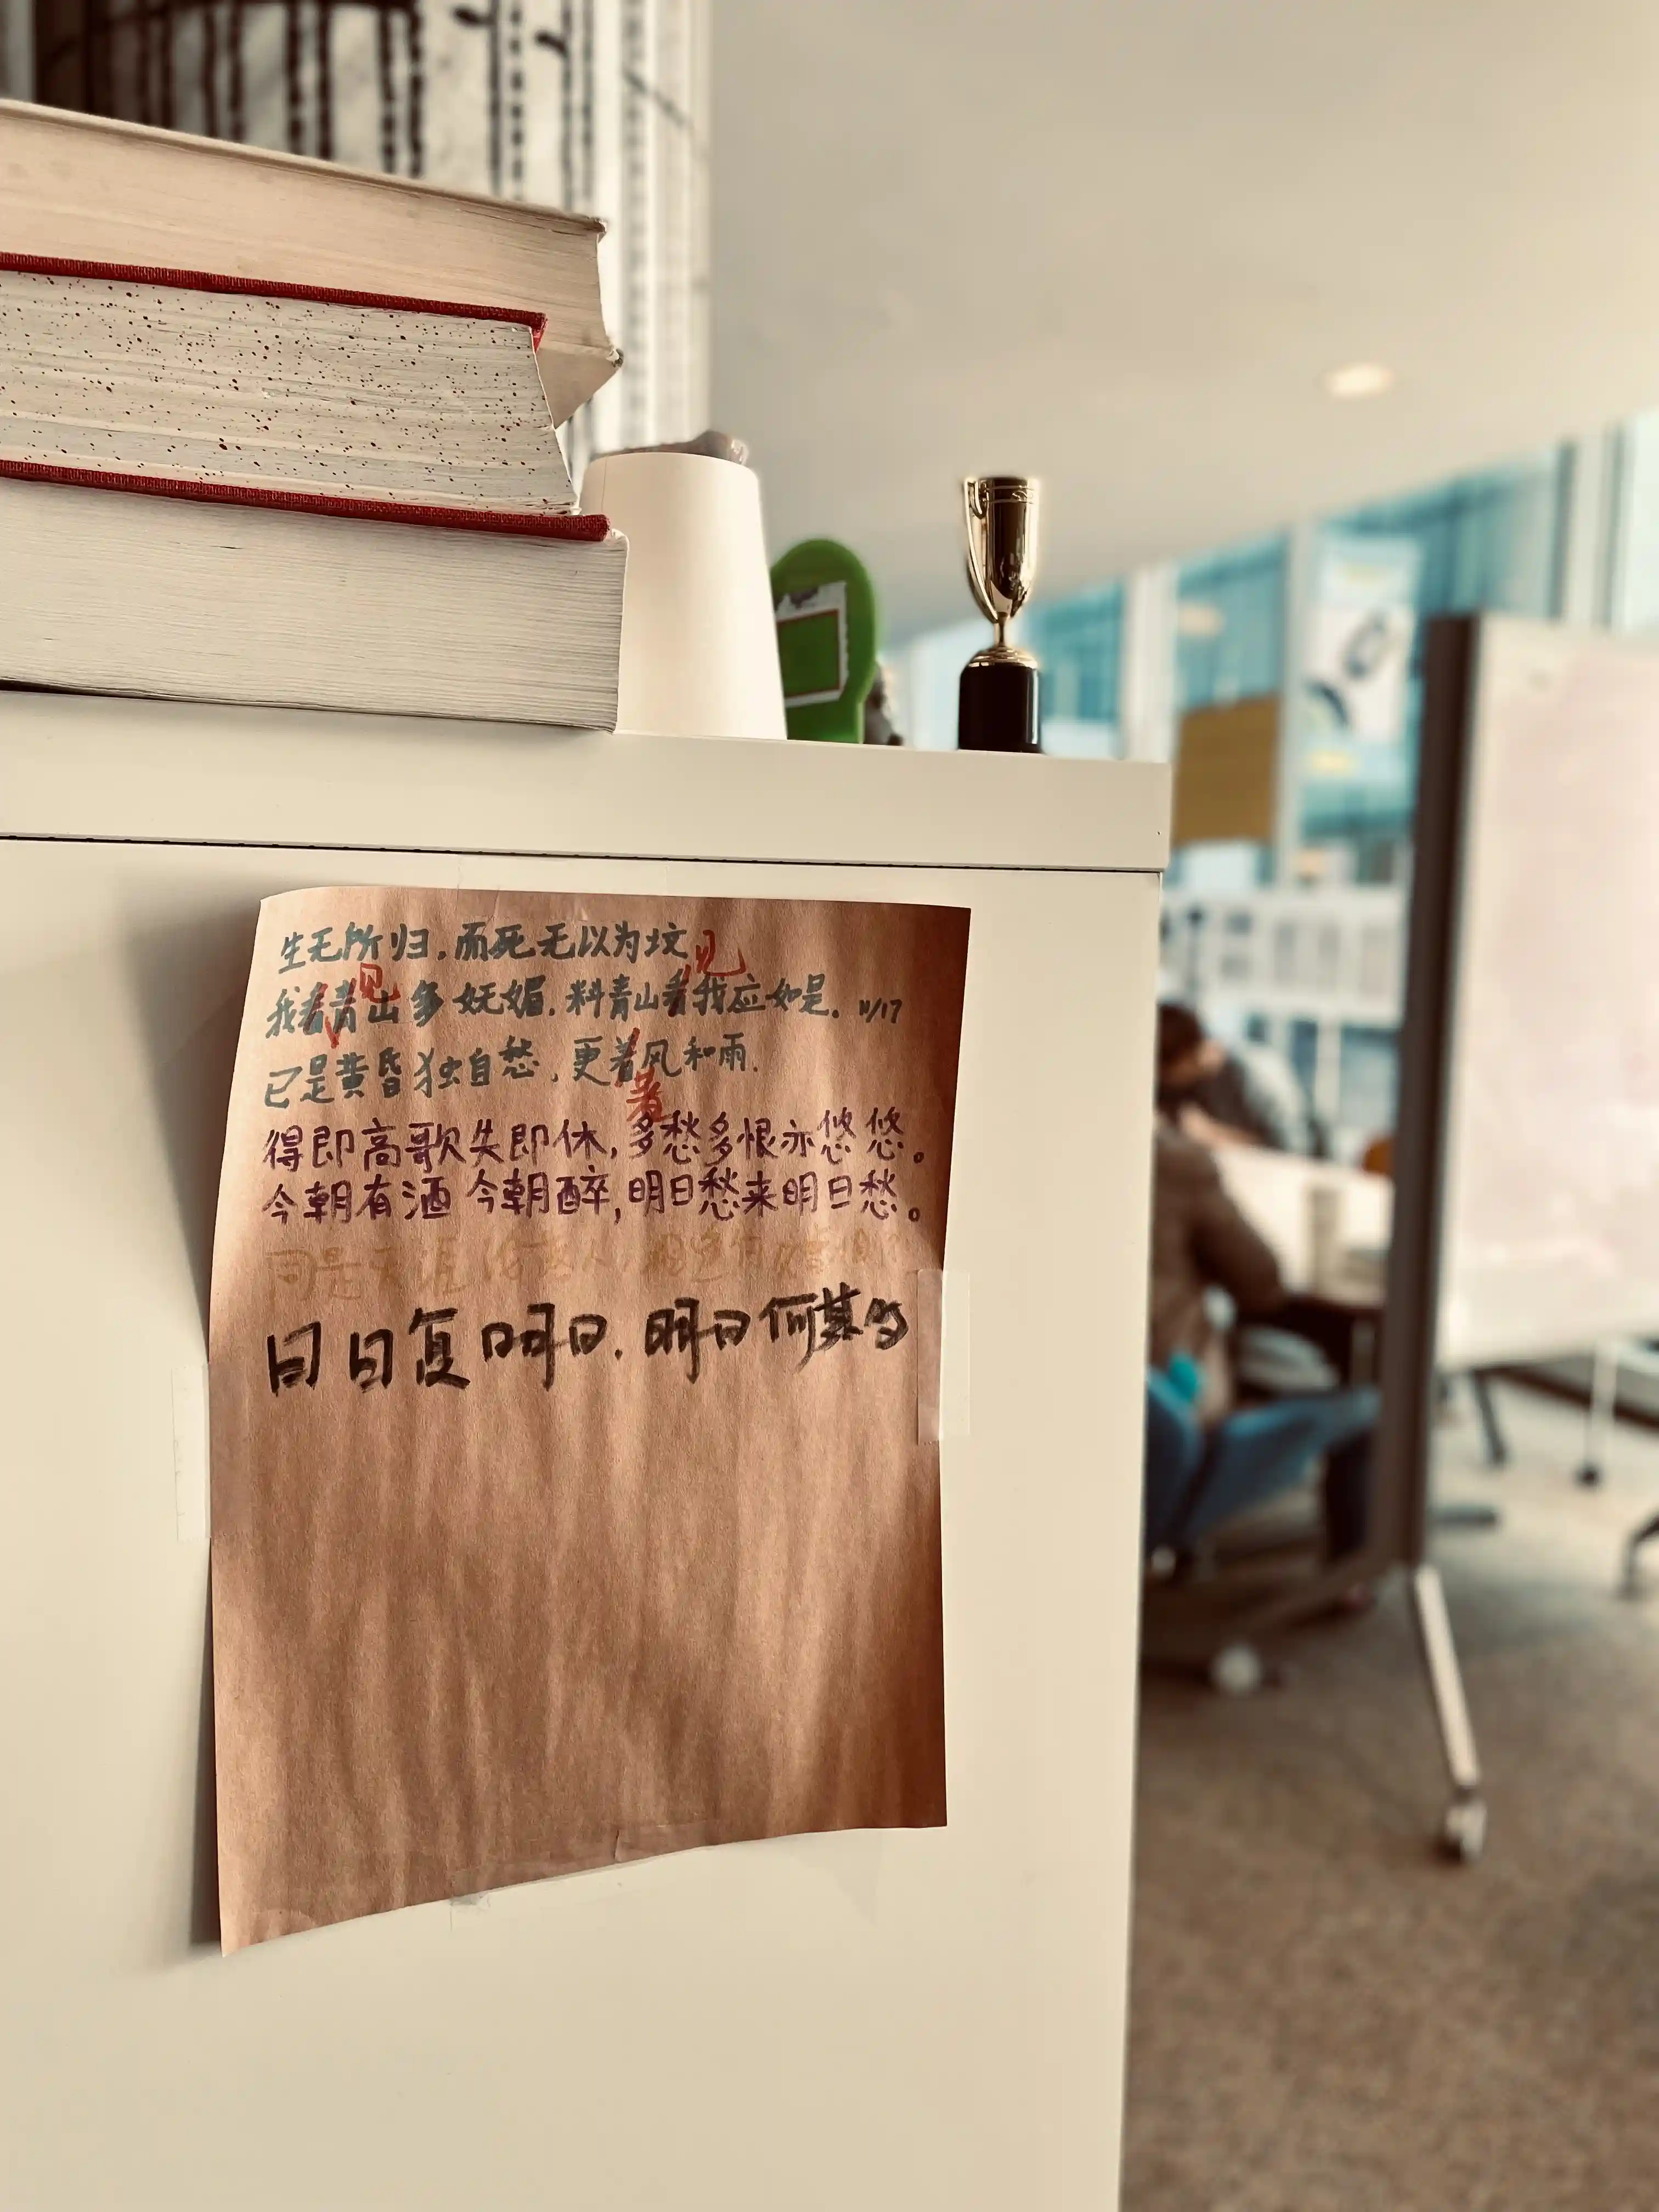 生无所归，而死无以为坟
见
我看青山多妩媚，料青山看我应如是。11/17
见
已是黄昏独自愁，更着风和雨.
著
得即高歌失即休，多愁多恨亦悠悠。
今朝有酒今朝醉，明日愁来明日愁。
同是天涯沦落人，相逢何必曾相识？
日日复明日．明日何其多